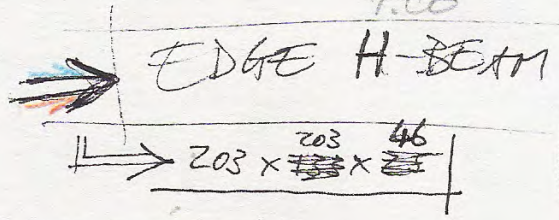 EDGE H-BEAM
203 x 203 x 46